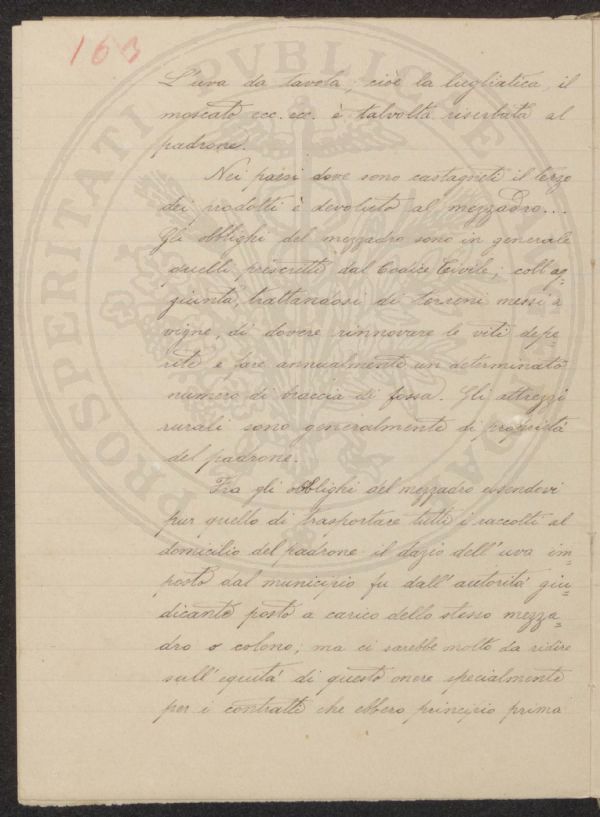 163
L'uva da tavola, cioè la lugliatica, il
moscato ecc. ecc. è talvolta riserbata al
padrone.
Nei paesi dove sono castagneti il terzo
dei prodotti è devoluto al mezzadro....
Gli obblighi del mezzadro sono in generale
quelli prescritti dal Codice Civile; coll'ag=
giunta, trattandosi di terreni messi a
vigne, di dovere rinnovare le viti depe=
rite e fare annualmente un determinato
numero di braccia di fossa. Gli attrezzi
rurali sono generalmente di proprietà
del padrone.
Fra gli obblighi del mezzadro essendovi
pur quello di trasportare tutti i raccolti al
domicilio del padrone il dazio dell'uva im=
posto dal municipio fu dall'autorità giu=
dicante posto a carico dello stesso mezza=
dro o colono; ma ci sarebbe molto da ridire
sull'equità di questo onere specialmente
per i contratti che ebbero principio prima
PROSPERITATI PVBLICAE